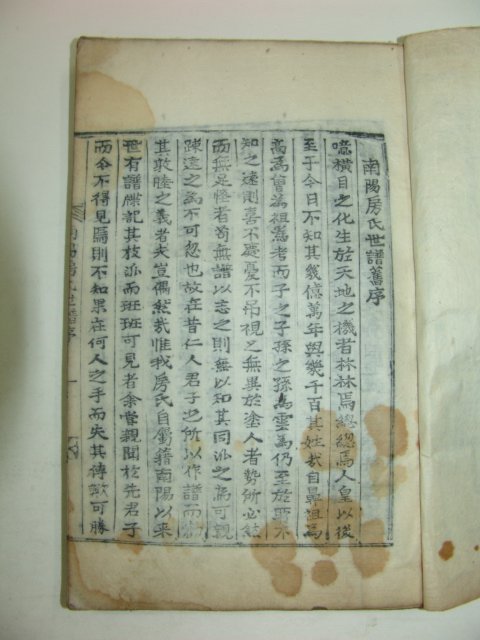 南陽房氏世譜舊序
噫橫目之化生於天地之機者林林焉總總焉人皇以後
至于今日不知其幾億萬年與幾千百其姓哉自鼻祖爲
高爲曾爲祖爲考而子之子孫之孫爲雲爲仍至於所不
知之遠則喜不慶憂不吊視之無異於塗人者勢所必然
而無足怪者苟無譜以志之則無以知其同派之爲可親
疎遠之爲不可忽也故在昔仁人君子必所以作譜而
其敦睦之義者夫豈偶然哉惟我房氏自屬籍南陽以來
世有譜牒記其枝派而班班可見者余嘗親聞於先君子
而今不得見焉則不知果在何人之手而失其傳歟可勝
南陽房氏世譜序